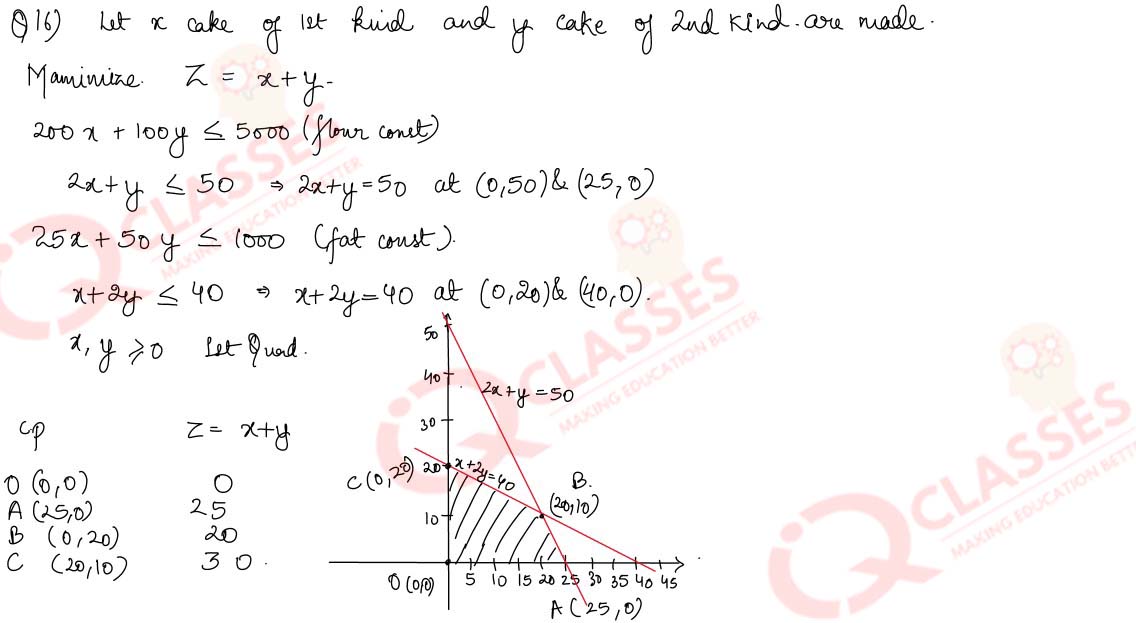 Q16) Let x cake of 1st kind and y cake of 2nd kind. are made.
Maminize. Z = x+y.
200x + 100y ≤ 5000 (flour const)
2x+y ≤ 50 ⇒ 2x+y=50 at (0,50)& (25,0)
25x + 50y ≤ 1000 (fat const).
x+2y ≤ 40 ⇒ x+2y=40 at (0,20)& (40,0).
x, y ≥ 0 Ist Quad.
50
40
30
20
10
2x+y=50
x+2y=40
C(0,20)
B.
(20,10)
O(0,0)
5 10 15 20 25 30 35 40 45
A(25,0)
cp Z= x+y
O (0,0) 0
A (25,0) 25
B (0,20) 20
C (20,10) 30.
IQ CLASSES
MAKING EDUCATION BETTER
IQ CLASSES
MAKING EDUCATION BETTER
IQ CLASSES
MAKING EDUCATION BETTER